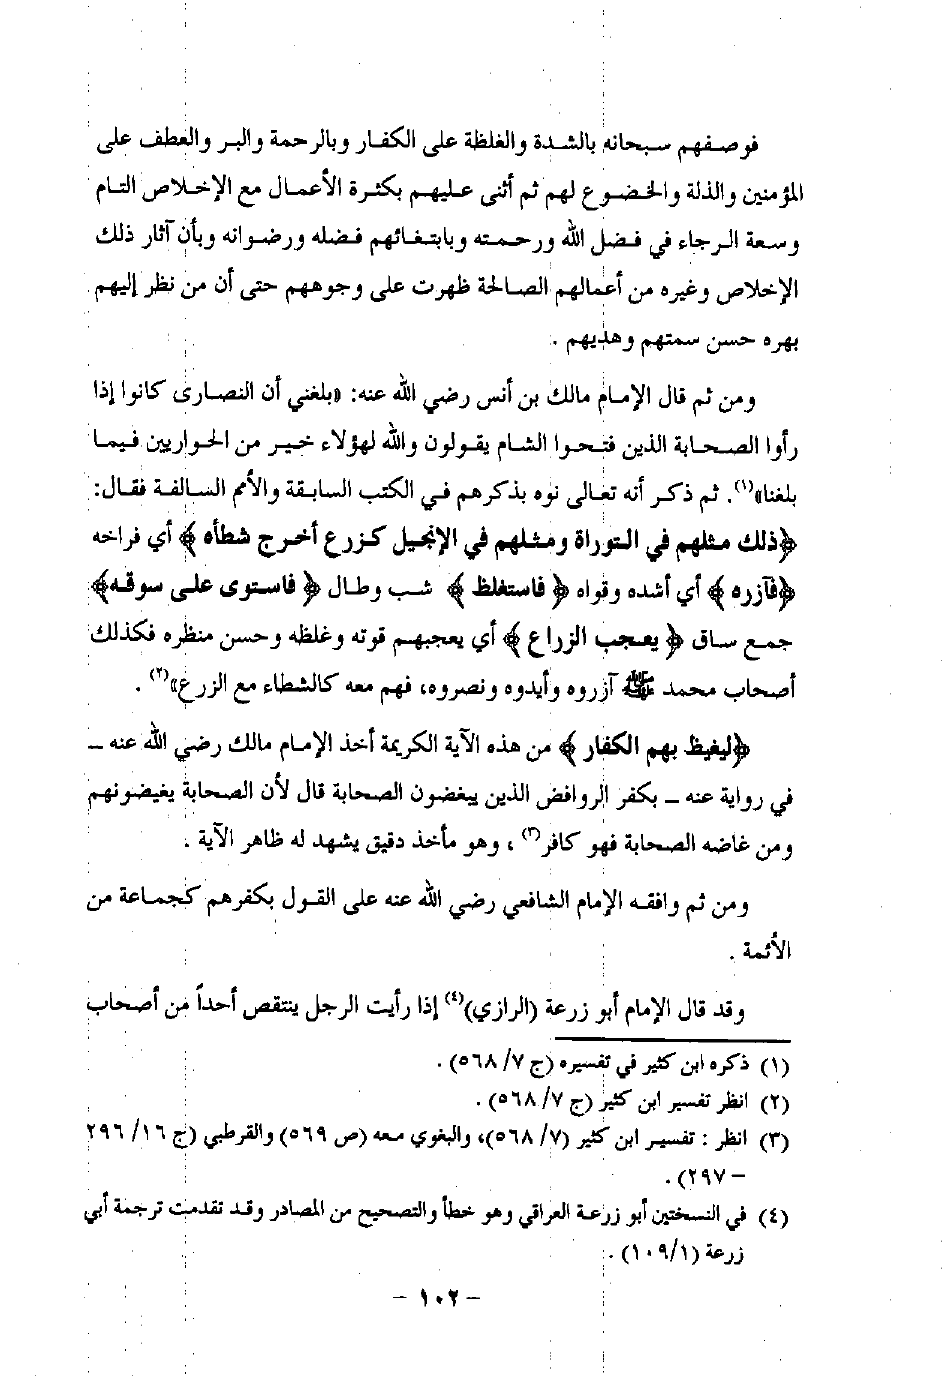 فوصفهم سبحانه بالشدة والغلظة على الكفار وبالرحمة والبر والعطف على
المؤمنين والذلة والخضوع لهم ثم أثنى عليهم بكثرة الأعمال مع الإخلاص التام
وسعة الرجاء في فضل الله ورحمته وبابتغائهم فضله ورضوانه وبأن آثار ذلك
الإخلاص وغيره من أعمالهم الصالحة ظهرت على وجوههم حتى أن من نظر إليهم
بهره حسن سمتهم وهديهم .
ومن ثم قال الإمام مالك بن أنس رضي الله عنه: «بلغني أن النصارى كانوا إذا
رأوا الصحابة الذين فتحوا الشام يقولون والله لهؤلاء خير من الحواريين فيما
بلغنا»(١). ثم ذكر أنه تعالى نوه بذكرهم في الكتب السابقة والأمم السالفة فقال:
﴿ذلك مثلهم في التوراة ومثلهم في الإنجيل كزرع أخرج شطأه ﴾ أي فراخه
﴿فآزره ﴾ أي أشده وقواه ﴿ فاستغلظ ﴾ شب وطال ﴿ فاستوى على سوقه﴾
جمع ساق ﴿ يعجب الزراع ﴾ أي يعجبهم قوته وغلظه وحسن منظره فكذلك
أصحاب محمد ﷺ آزروه وأيدوه ونصروه، فهم معه كالشطاء مع الزرع»(٢) .
﴿ليغيظ بهم الكفار ﴾ من هذه الآية الكريمة أخذ الإمام مالك رضي الله عنه ــ
في رواية عنه ــ بكفر الروافض الذين يبغضون الصحابة قال لأن الصحابة يغيضونهم
ومن غاضه الصحابة فهو كافر(٣) ، وهو مأخذ دقيق يشهد له ظاهر الآية .
ومن ثم وافقه الإمام الشافعي رضي الله عنه على القول بكفرهم كجماعة من
الأئمة .
وقد قال الإمام أبو زرعة (الرازي)(٤) إذا رأيت الرجل ينتقص أحداً من أصحاب
(١) ذكره ابن كثير في تفسيره (ج ٧/ ٥٦٨) .
(٢) انظر تفسير ابن كثير (ج ٧/ ٥٦٨) .
(٣) انظر : تفسير ابن كثير (٧/ ٥٦٨)، والبغوي معه (ص ٥٦٩) والقرطبي (ج ١٦/ ٢٩٦
– ٢٩٧) .
(٤) في النسختين أبو زرعة العراقي وهو خطأ والتصحيح من المصادر وقد تقدمت ترجمة أبي
زرعة (١٠٩/١) .
– ١٠٢ –